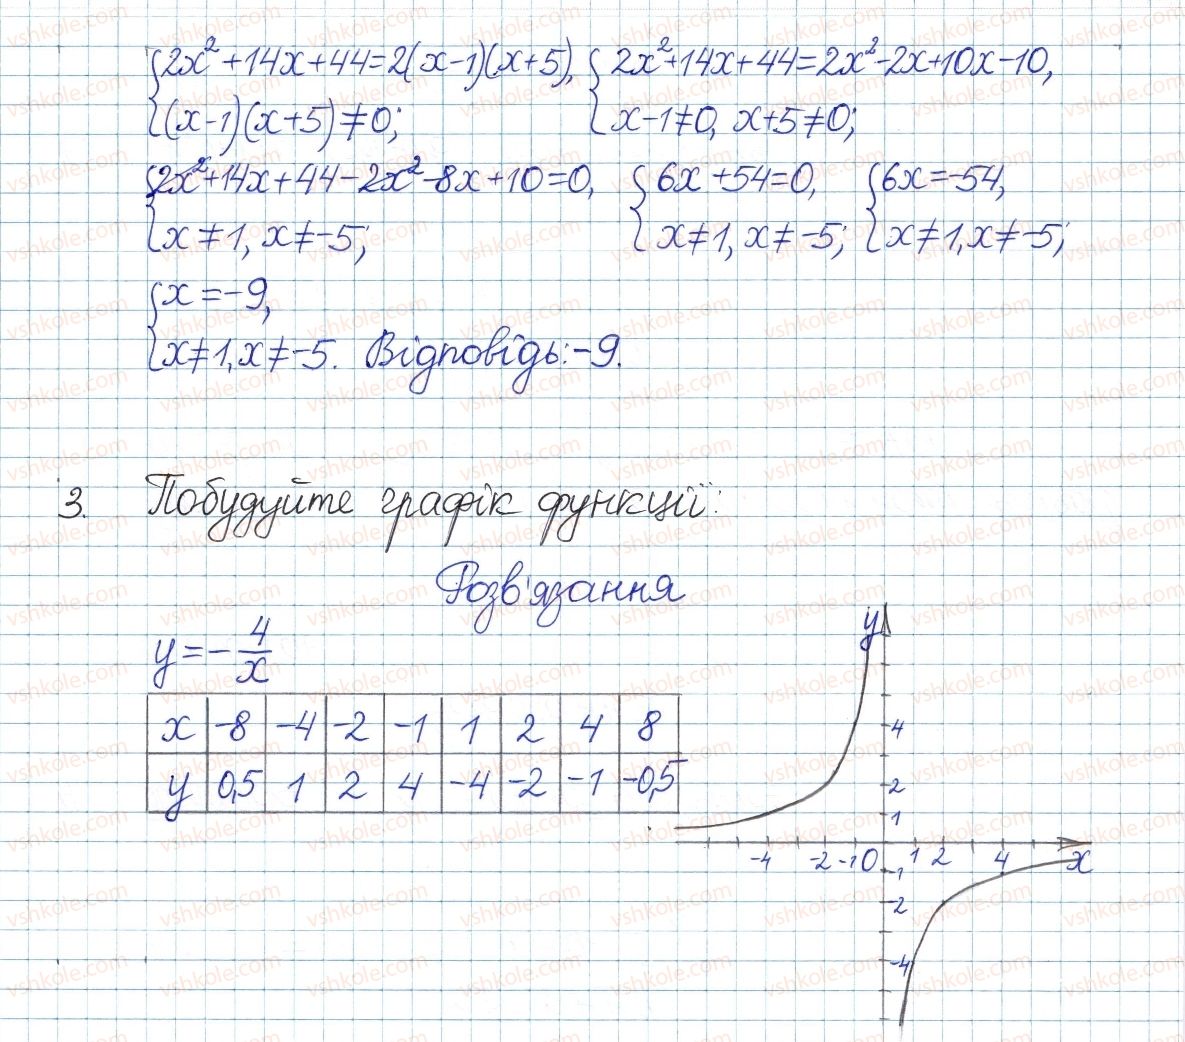 {2x²+14x+44=2(x-1)(x+5), {2x²+14x+44=2x²-2x+10x-10,
{(x-1)(x+5)≠0; {x-1≠0, x+5≠0;
{2x²+14x+44-2x²-8x+10=0, {6x+54=0, {6x=-54,
{x≠1, x≠-5; {x≠1, x≠-5; {x≠1, x≠-5;
{x=-9,
{x≠1, x≠-5. Відповідь: -9.
3. Побудуйте графік функції:
Розв'язання
y=-4/x
x -8 -4 -2 -1 1 2 4 8
y 0,5 1 2 4 -4 -2 -1 -0,5
y
4
2
1
-4 -2 -1 0 1 2 4 x
-1
-2
-4
vshkole.com